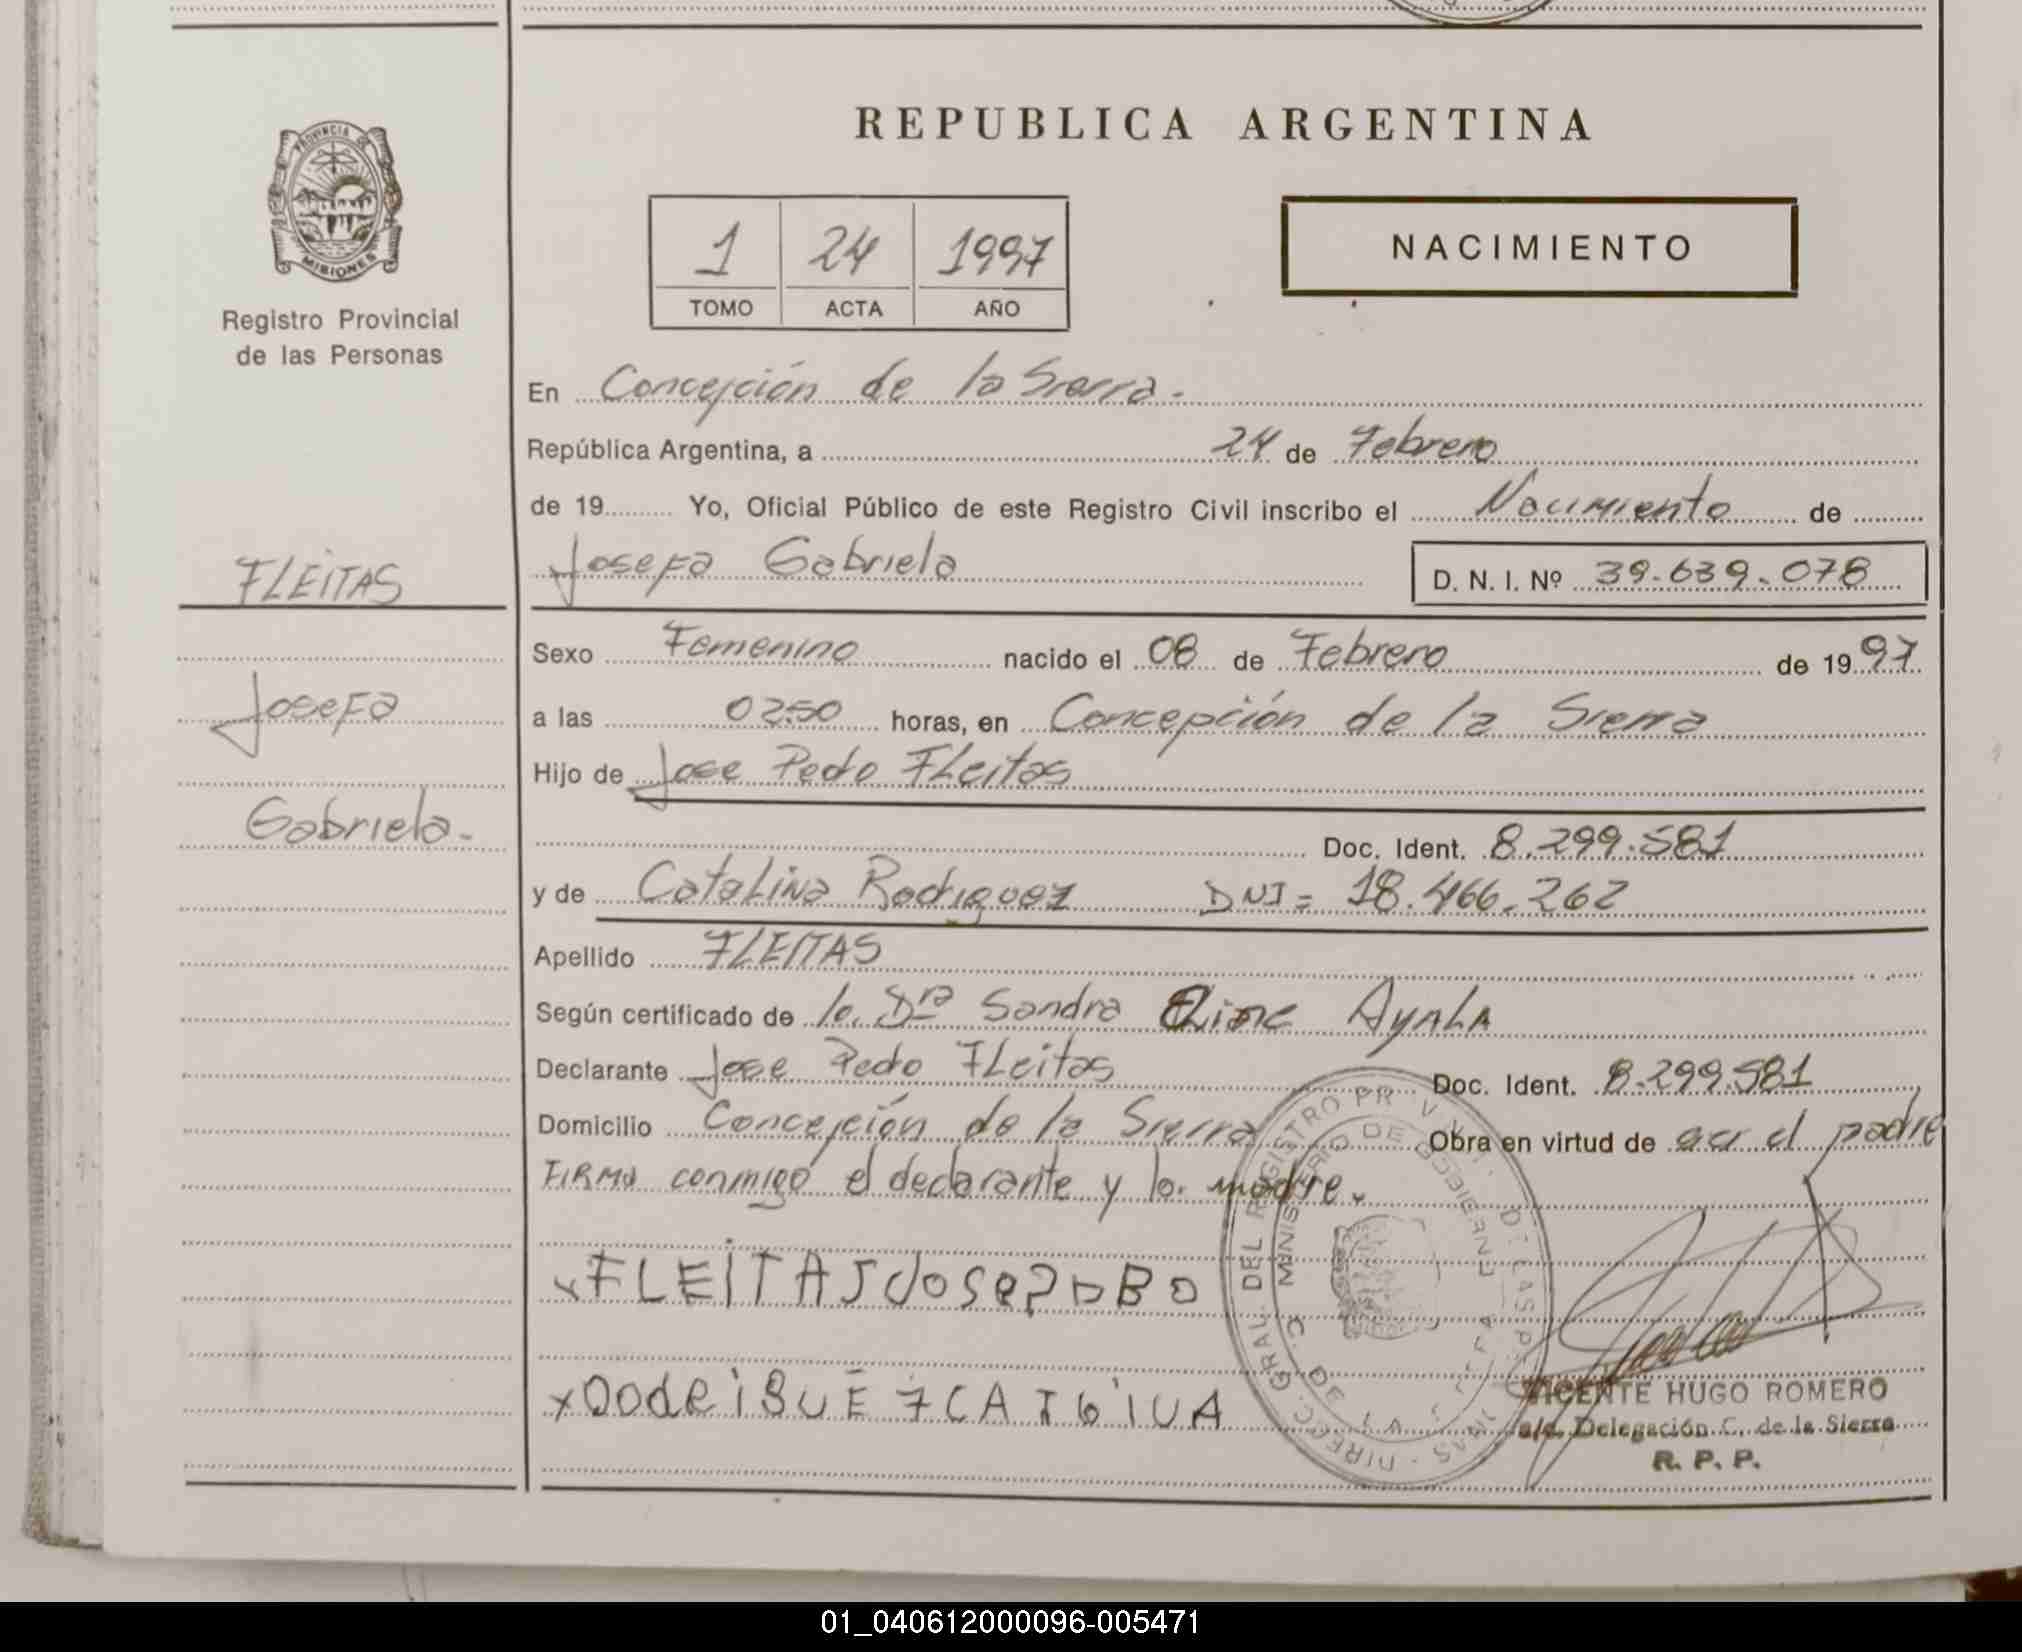 PROVINCIA DE
MISIONES
Registro Provincial
de las Personas
FLEITAS
Josefa
Gabriela.
REPUBLICA ARGENTINA
1 24 1997
TOMO ACTA AÑO
NACIMIENTO
En Concepción de la Sierra.
República Argentina, a 24 de Febrero
de 19 Yo, Oficial Público de este Registro Civil inscribo el Nacimiento de
Josefa Gabriela D. N. I. Nº 39.639.078
Sexo Femenino nacido el 08 de Febrero de 1997
a las 02:50 horas, en Concepción de la Sierra
Hijo de Jose Pedo Fleitas
Doc. Ident. 8.299.581
y de Catalina Rodriguez DNI= 18.466.262
Apellido FLEITAS
Según certificado de la Dra Sandra Ayala
Declarante Jose Pedo Fleitas Doc. Ident. 8.299.581
Domicilio Concepción de la Sierra Obra en virtud de ser el padre
FIRMA conmigo el declarante y la madre.
x FLEITAS JOSE
x
DIRECC. GRAL. DEL REGISTRO
MINISTERIO DE GOBIERNO
VICENTE HUGO ROMERO
a/c. Delegación C. de la Sierra
R. P. P.
01_040612000096-005471